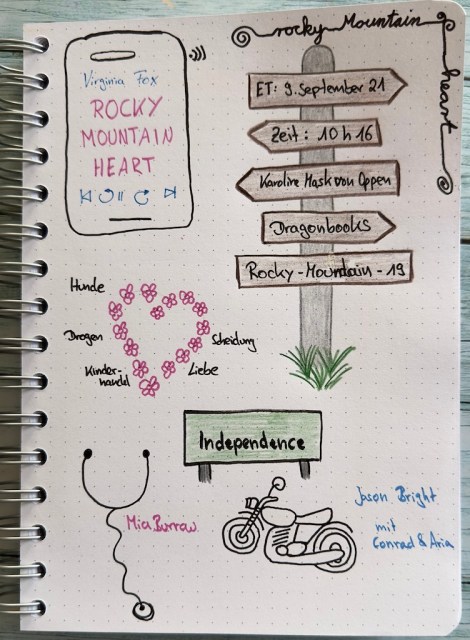 rocky Mountain
heart
Virginia Fox
ROCKY
MOUNTAIN
HEART
ET: 9. September 21
Zeit: 10 h 16
Karoline Mask von Oppen
Dragonbooks
Rocky-Mountain-19
Hunde
Drogen
Kinder-
handel
Scheidung
Liebe
Independence
Mia Burrow
Jason Bright
mit
Conrad & Aria